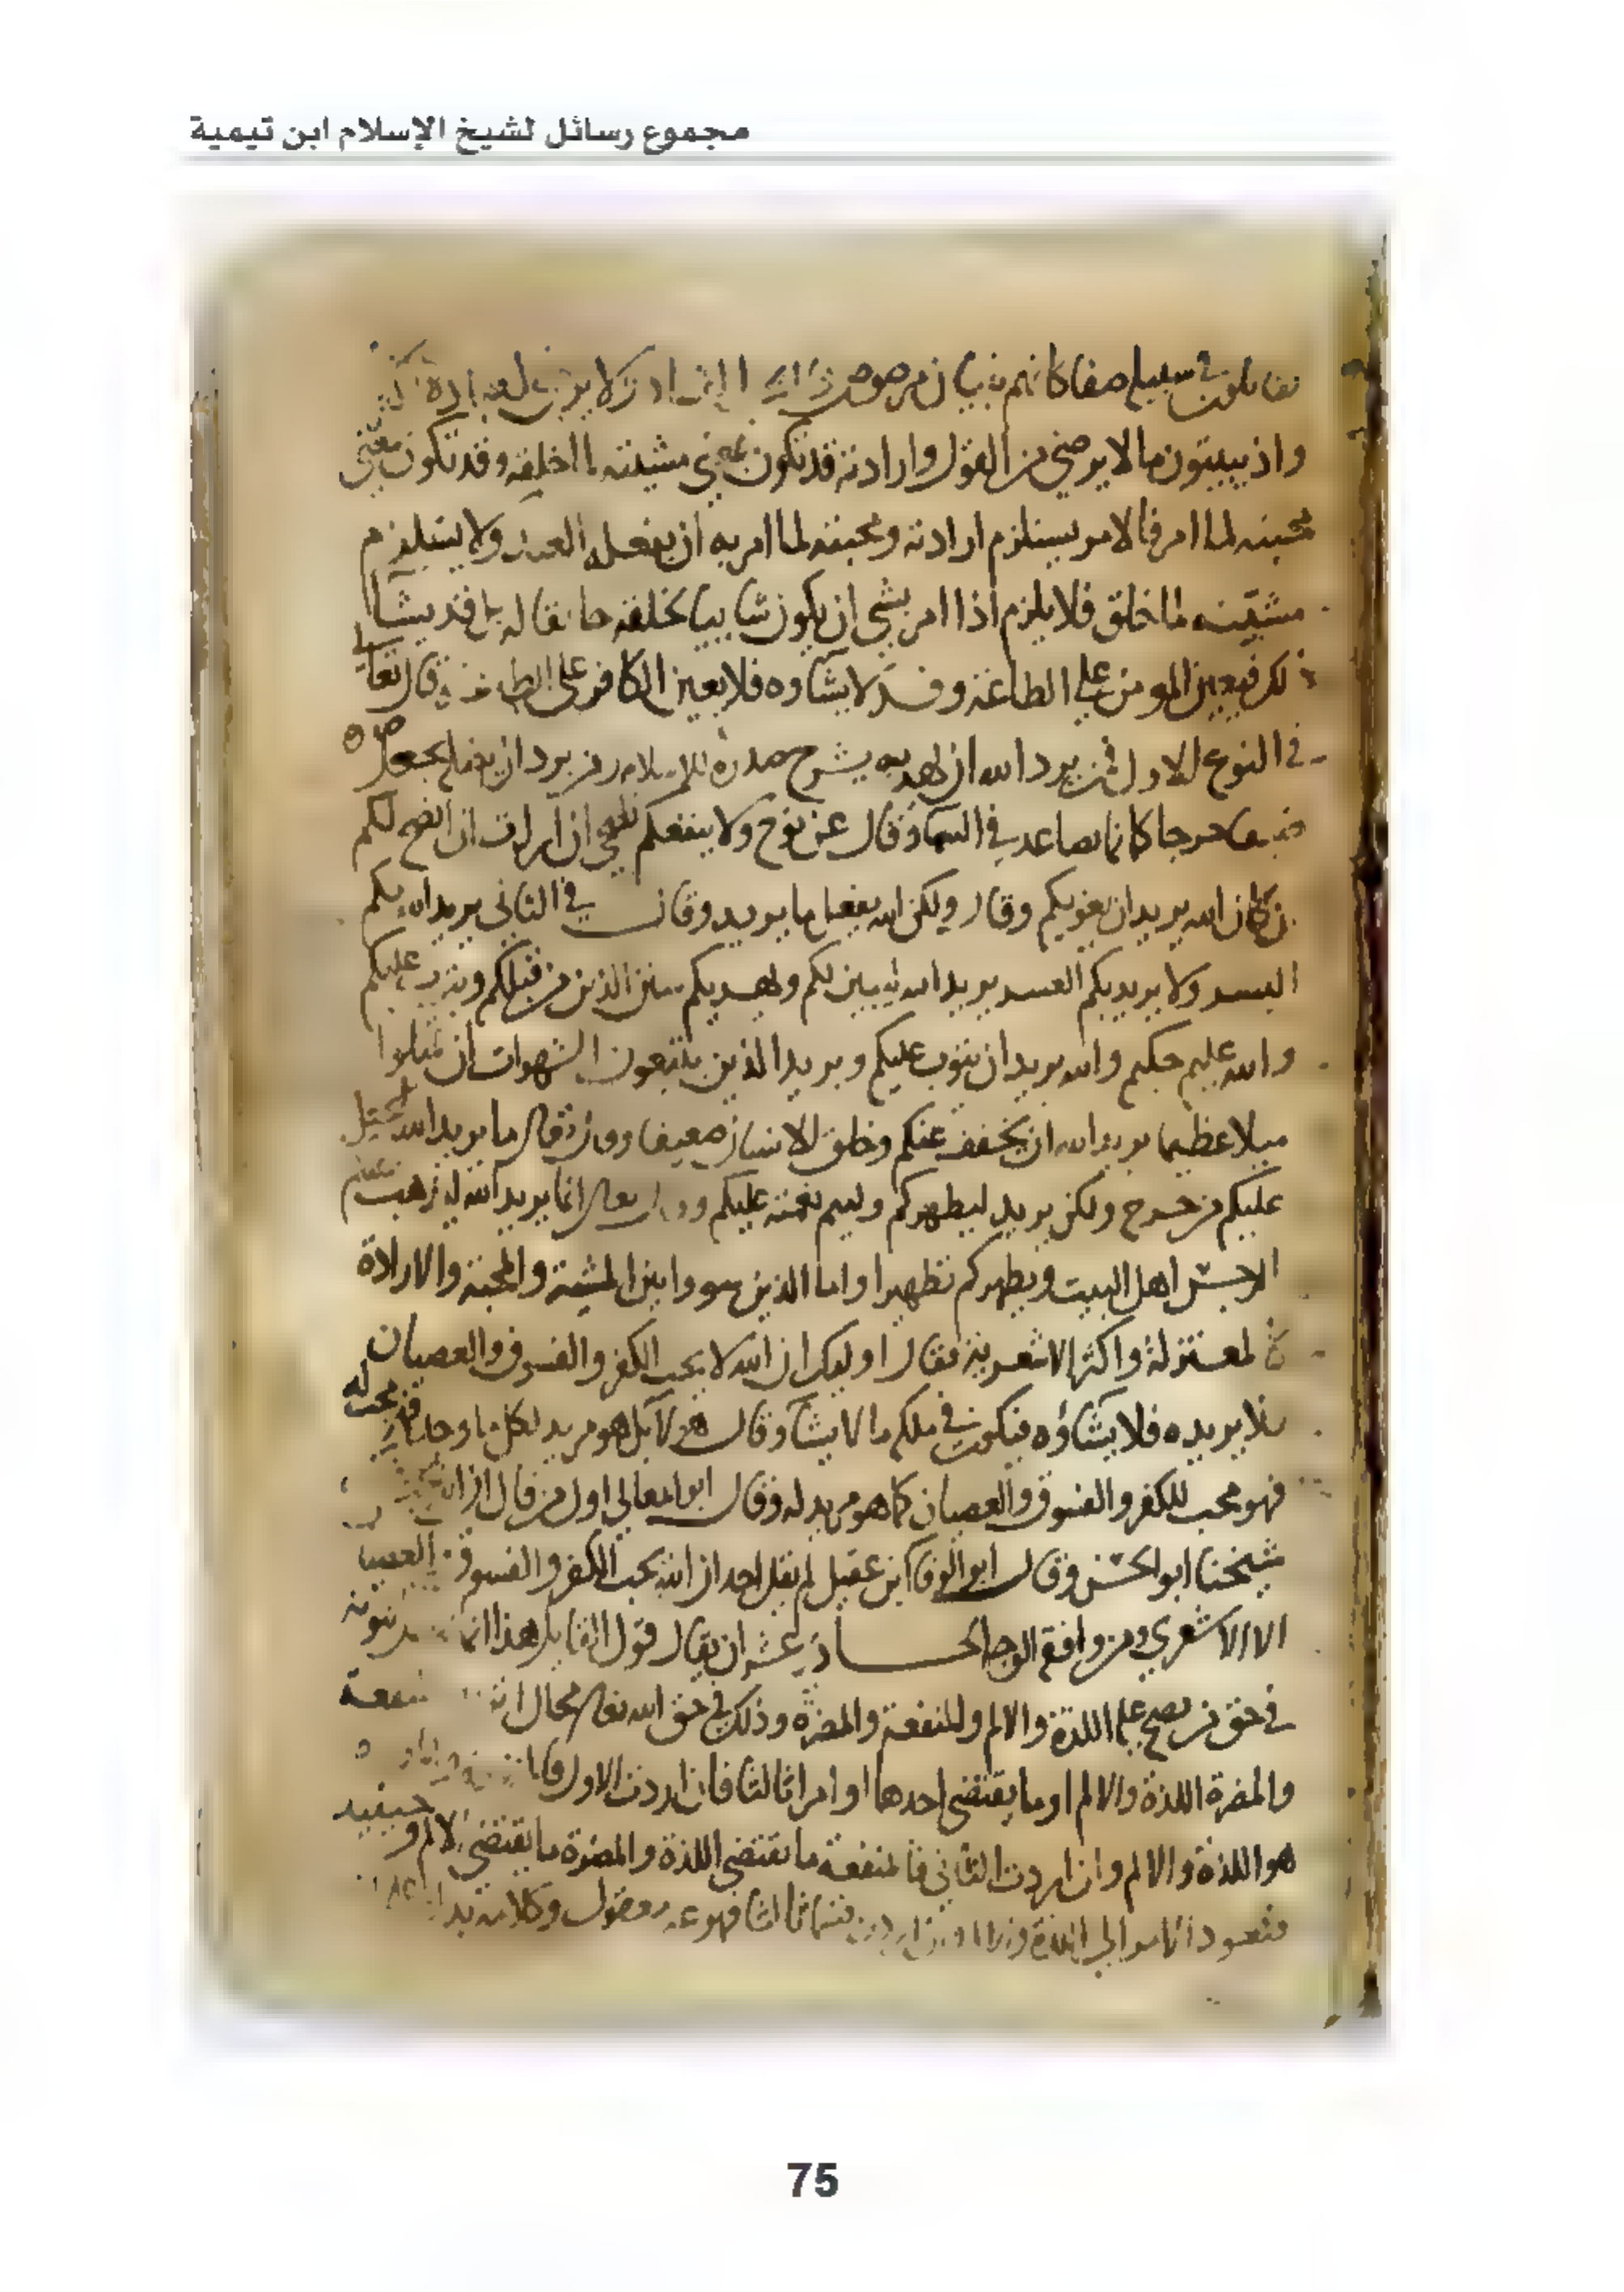 مجموع رسائل لشيخ الإسلام ابن تيمية
يقاتلون في سبيله صفا كانهم بنيان مرصوص
واذ يبيتون ما لا يرضى من القول وارادته قد تكون بمعنى مشيئته لما خلقه وقد تكون بمعنى
محبته لما امر فالامر يستلزم ارادته ومحبته لما امر به ان يفعله العبد ولا يستلزم
مشيئته لما خلق فلا يلزم اذا امر بشي ان يكون شاييا لخلقه حا بل قد يشا
ذلك فيعين المومن على الطاعة وقد لا يشاوه فلا يعين الكافر على الطاعة قال تعالى
في النوع الاول فمن يرد الله ان يهديه يشرح صدره للاسلام ومن يرد ان يضله يجعل صدره
ضيقا حرجا كانما يصاعد في السما وقال عن نوح ولا ينفعكم نصحي ان اردت ان انصح لكم
ان كان الله يريد ان يغويكم وقال ولكن الله يفعل ما يريد وقال في الثاني يريد الله بكم
اليسر ولا يريد بكم العسر يريد الله ليبين لكم ويهديكم سنن الذين من قبلكم ويتوب عليكم
والله عليم حكيم والله يريد ان يتوب عليكم ويريد الذين يتبعون الشهوات ان تميلوا
ميلا عظيما يريد الله ان يخفف عنكم وخلق الانسان ضعيفا وقال تعالى ما يريد الله ليجعل
عليكم من حرج ولكن يريد ليطهركم وليتم نعمته عليكم وقال تعالى انما يريد الله ليذهب عنكم
الرجس اهل البيت ويطهركم تطهيرا واما الذين سووا بين المشية والمحبة والارادة
كالمعتزلة واكثر الاشعرية فقال اوليك ان الله لا يحب الكفر والفسوق والعصيان
فلا يريده فلا يشاؤه فيكون في ملكه ما لا يشا وقال هولا بل هو مريد لكل
فهو محب للكفر والفسوق والعصيان كما هو مريد له وقال ابو المعالي اول من قال ان الله
شيخنا ابو الحسن وقال ابو الوفا ابن عقيل لم يقل احد ان الله يحب الكفر والفسوق والعصيا
الا الاشعري ومن وافقه الوجه الحادي عشر ان يقال قول القايل هذا انما
في حق من يصح عليه اللذة والالم والمنفعة والمضرة وذلك في حق الله تعالى محال
والمضرة اللذة والالم او ما يقتضي احدهما او امرا ثالثا فان اردت الاول
هو اللذة والالم وان اردت الثاني فالمنفعة ما يقتضي اللذة والمضرة ما يقتضي الالم وحينيذ
فتعود الامور الى اللذة
75